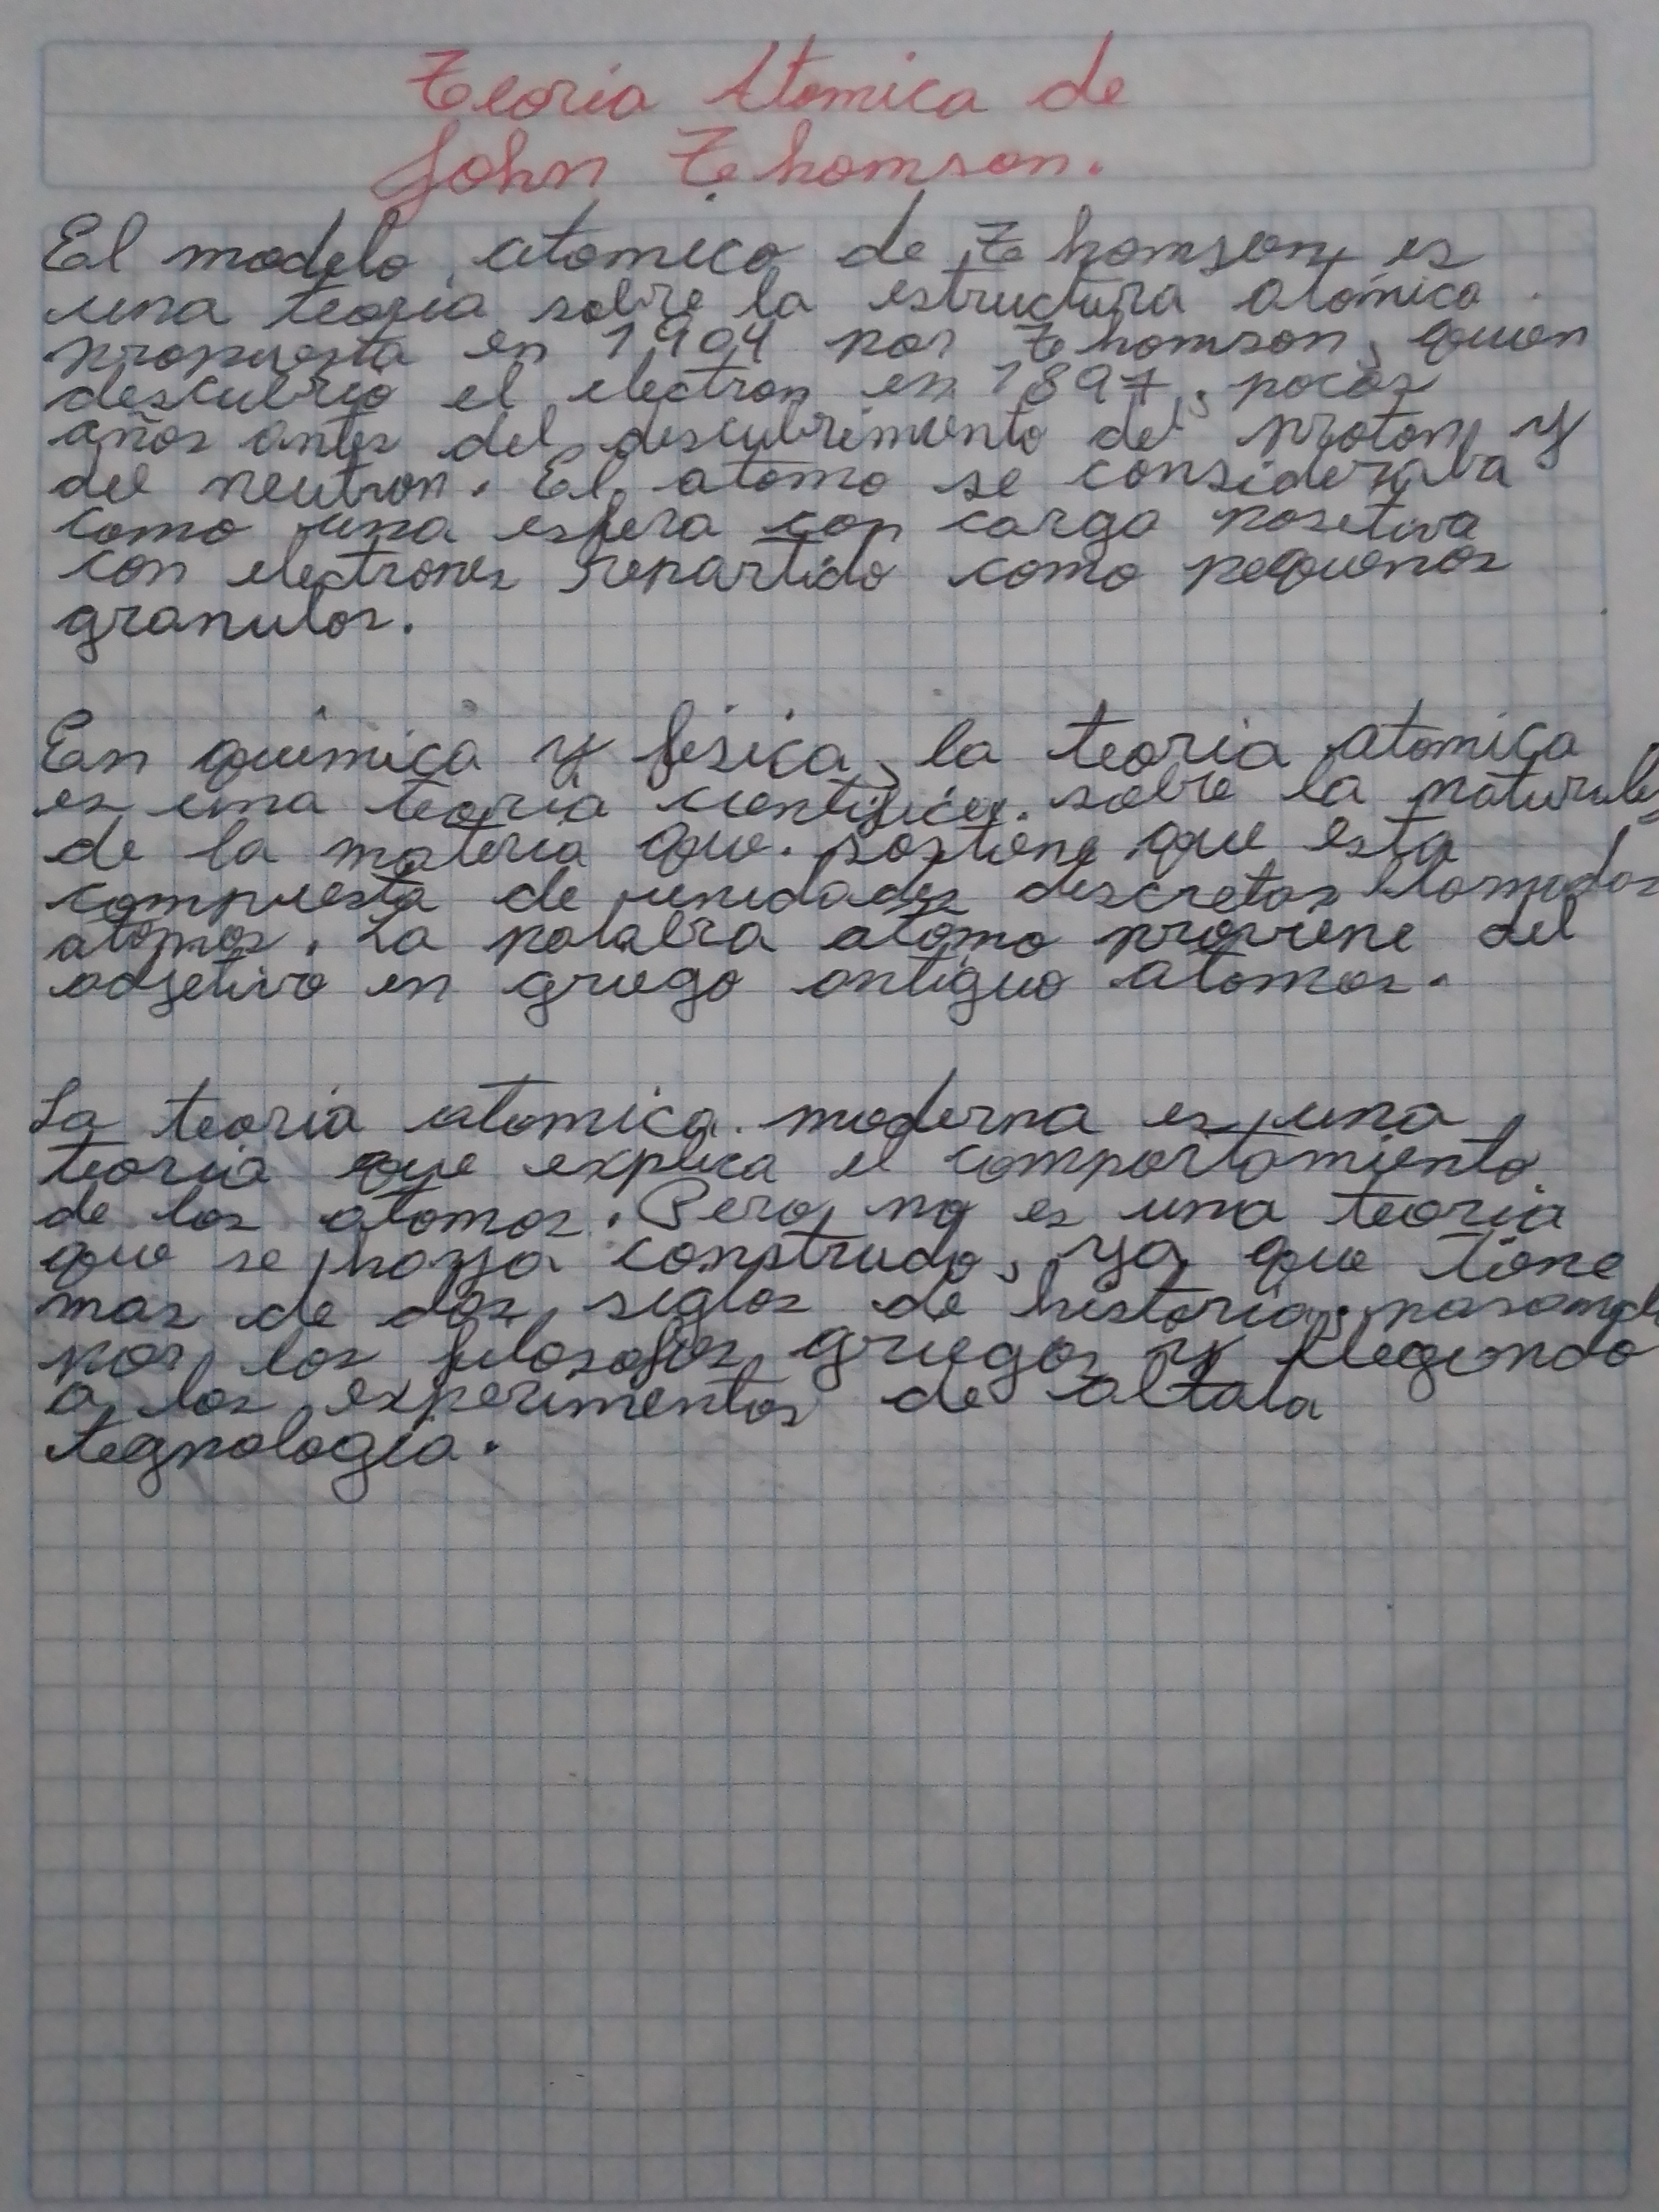 Teoria Atomica de
John Thomson.
El modelo atomico de Thomson es
una teoria sobre la estructura atómica
propuesta en 1904 por Thomson, quien
descubrio el electron en 1897, pocos
años antes del descubrimiento del proton y
del neutron. El atomo se consideraba
como una esfera con carga positiva
con electrones repartido como pequenos
granulos.
En quimica y fisica, la teoria atomica
es una teoria cientifica. sobre la naturalez
de la materia que. sostiene que esta
compuesta de unidades discretas llamadas
atomos. La palabra atomo proviene del
adjetivo en griego antiguo atomos.
La teoria atomica. moderna es una
teoria que explica el comportamiento
de los atomos. Pero, no es una teoria
que se haya construdo, ya que tiene
mas de dos siglos de historia, pasand
por los filosofos griegos y llegando
a los experimentos de altala
tegnologia.